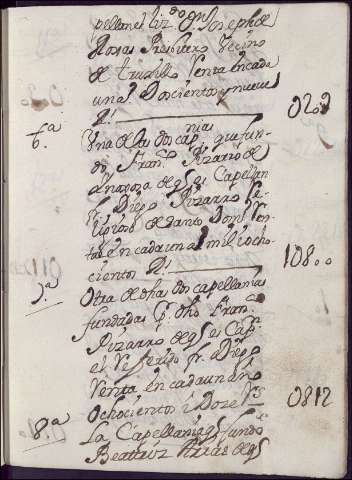 pellan el liz.do Dn Joseph de
Rosas Presbitero Vecino
de truxillo Renta en cada
un a.o Doscientos y nueve
R.s 0209
6.a Una de las dos cap.nias que fun-
do Fran.co Pizarro de
es Capellan
Fr. Diego Pizarro Re-
ligioso de Santo Dom.o Ren-
ta en cada un a.o mil y ocho-
cientos R.s 10800
7.a Otra de d.has dos capellanias
fundadas p.r d.ho Fran.co
Pizarro de q.e es Cap.n
el Referido fr. Diego
Renta en cada un año
Ochocientos i Doze R.s 0812
8.a La Capellania q.e fundo
Beatriz Arias de q.e